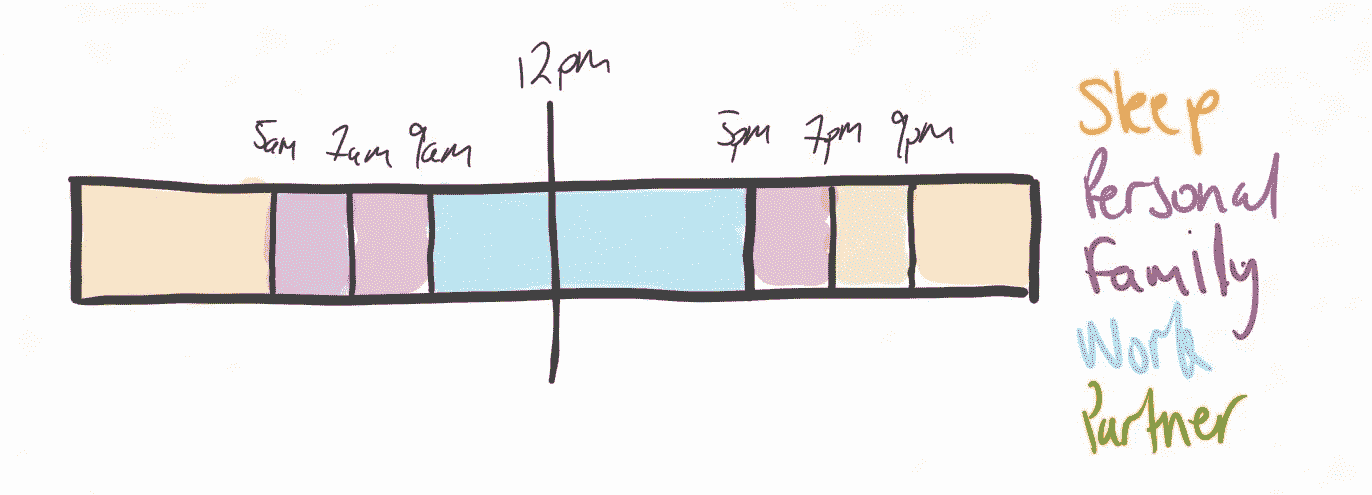 12pm
5am 7am 9am 5pm 7pm 9pm
Sleep
Personal
Family
Work
Partner